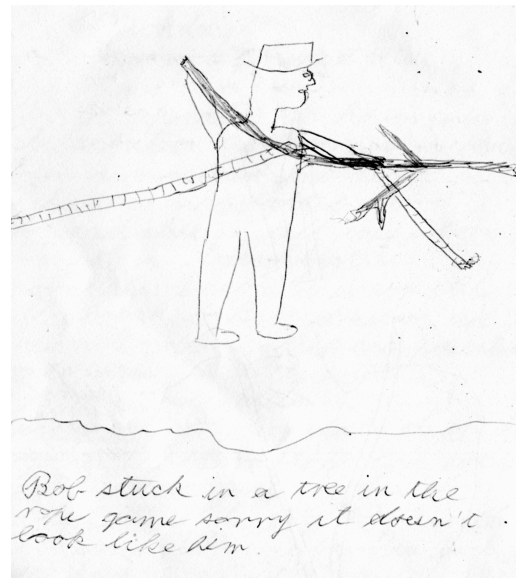 Bob stuck in a tree in the
rope game sorry it doesn't
look like him.